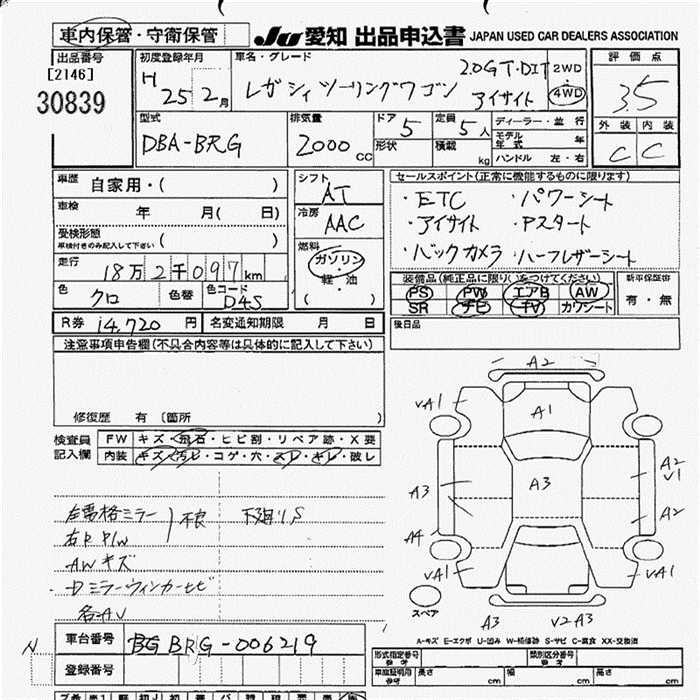 車内保管・守衛保管
JU 愛知 出品申込書 JAPAN USED CAR DEALERS ASSOCIATION
出品番号
[2146]
30839
初度登録年月
H 25 2月
車名・グレード
レガシィツーリングワゴン
2.0GT・DIT
アイサイト
2WD
・
4WD
評価点
3.5
外装 内装
C C
型式
DBA-BRG
排気量
2000 cc
ドア 5
形状
定員 5人
積載 kg
ディーラー・並行
モデル年式 年
ハンドル 左・右
車歴 自家用・( )
車検 年 月( 日)
受検形態
車検付きのみ記入して下さい ( )
走行 18万2千097km
色 クロ 色替 色コード D4S
シフト
AT
冷房
AAC
燃料
ガソリン
・
軽油
( ・ )
セールスポイント(正常に機能するものに限ります)
・ETC ・パワーシート
・アイサイト ・Pスタート
・バックカメラ ・ハーフレザーシート
装備品(純正品に限り○をつけてください)
PS PW エアB AW
SR ナビ TV カワシート
新車保証書
有・無
R券 14,720 円 名変通知期限 月 日
後日品
注意事項申告欄(不具合内容等は具体的に記入して下さい)
修復歴 有 〔箇所
検査員
記入欄
FW キズ・飛石・ヒビ割・リペア跡・X要
内装 キズ・汚レ・コゲ・穴・スレ・キレ・破レ
左電格ミラー
右P P/W
不良
下廻りS
AWキズ
・Dミラーウィンカーヒビ
各AV
A2
VA1
A1
VA1
A3
A3
A2
V1
A2
A4
VA1
VA1
スペア
A3
V2A3
A-キズ E-エクボ U-凹み W-補修跡 S-サビ C-腐食 XX-交換済
N
車台番号 BG BRG-006219
登録番号
形式指定番号 参考
類別区分番号 参考
車庫証明用 参考
長さ cm
幅 cm
高さ cm